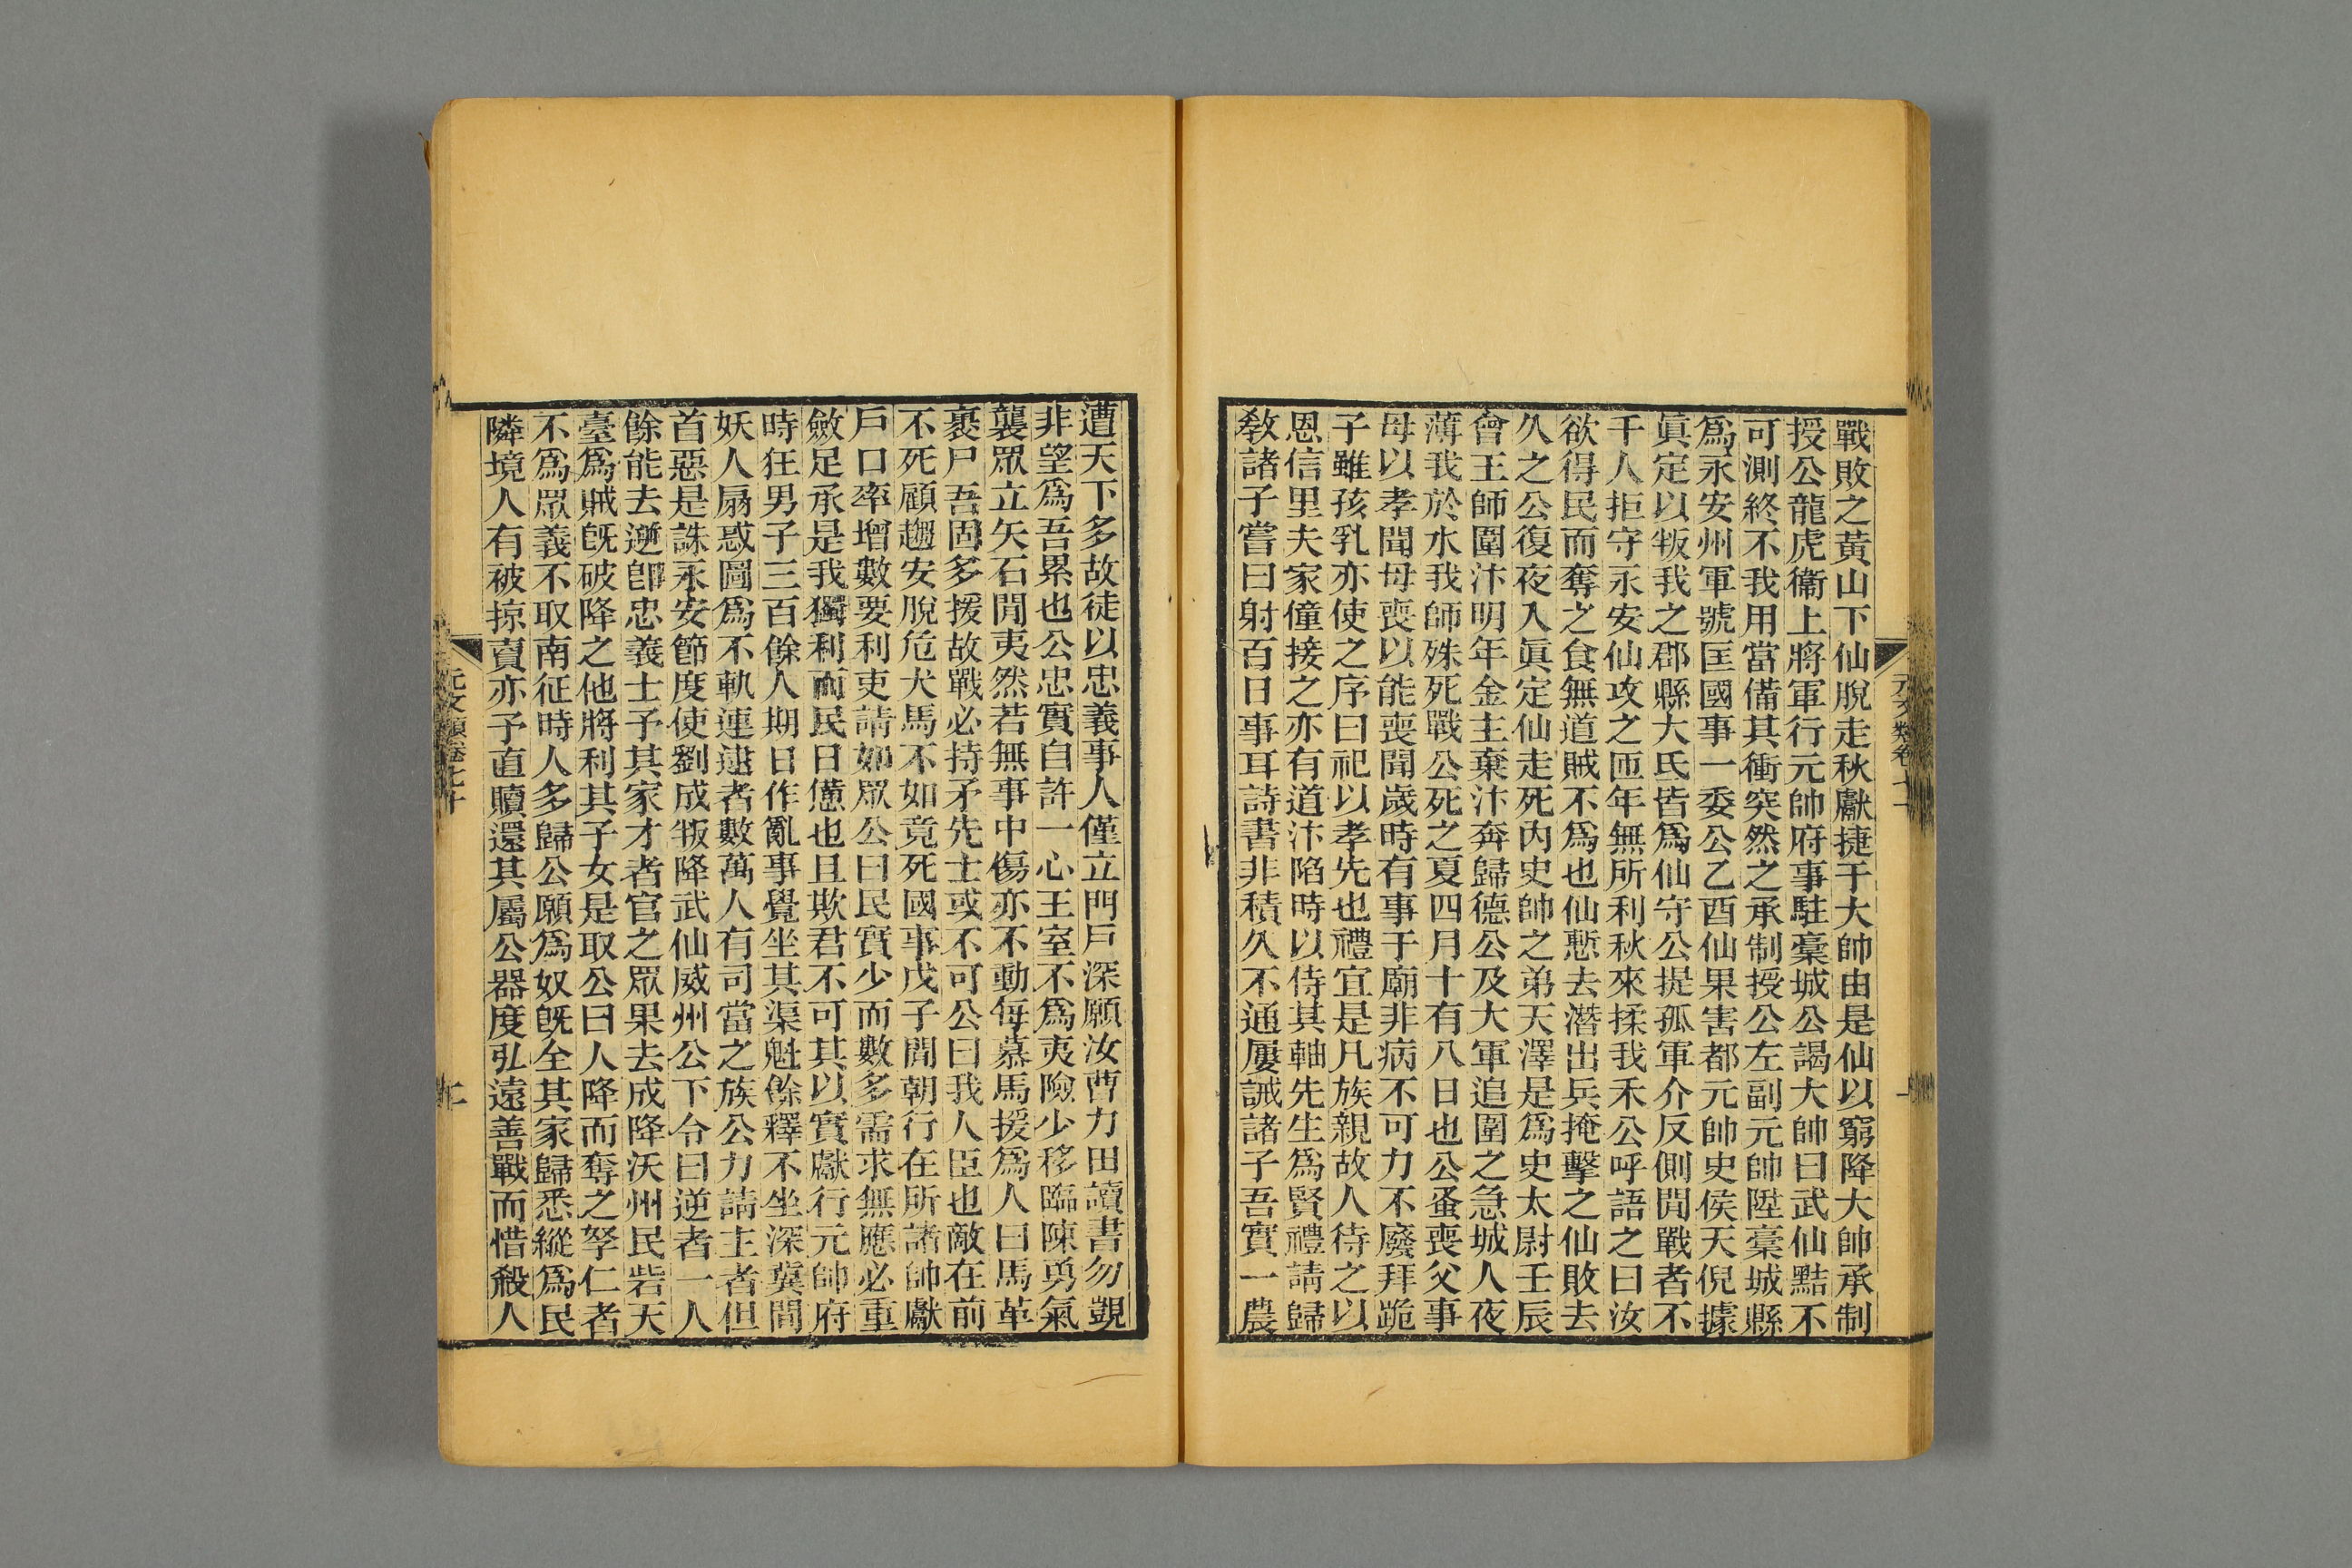 戰敗之黃山下仙脫走秋獻捷于大帥由是仙以窮降大帥承制
授公龍虎衞上將軍行元帥府事駐藁城公謁大帥曰武仙黠不
可測終不我用當備其衝突然之承制授公左副元帥陞藁城縣
爲永安州軍號匡國事一委公乙酉仙果害都元帥史侯天倪據
眞定以叛我之郡縣大氐皆爲仙守公提孤軍介反側閒戰者不
千人拒守永安仙攻之匝年無所利秋來揉我禾公呼語之曰汝
欲得民而奪之食無道賊不爲也仙慙去潛出兵掩擊之仙敗去
久之公復夜入眞定仙走死內史帥之弟天澤是爲史太尉壬辰
會王師圍汴明年金主棄汴奔歸德公及大軍追圍之急城人夜
薄我於水我師殊死戰公死之夏四月十有八日也公蚤喪父事
母以孝聞母喪以能喪聞歲時有事于廟非病不可力不廢拜跪
子雖孩乳亦使之序曰祀以孝先也禮宜是凡族親故人待之以
恩信里夫家僮接之亦有道汴陷時以侍其軸先生爲賢禮請歸
敎諸子嘗曰射百日事耳詩書非積久不通屢誡諸子吾實一農
遭天下多故徒以忠義事人僅立門戶深願汝曹力田讀書勿覬
非望爲吾累也公忠實自許一心王室不爲夷險少移臨陳勇氣
襲眾立矢石閒夷然若無事中傷亦不動每慕馬援爲人曰馬革
裹尸吾固多援故戰必持矛先士或不可公曰我人臣也敵在前
不死顧趨安脫危犬馬不如竟死國事戊子閒朝行在所諸帥獻
戶口率增數要利吏請如眾公曰民實少而數多需求無應必重
斂足承是我獨利而民日憊也且欺君不可其以實獻行元帥府
時狂男子三百餘人期日作亂事覺坐其渠魁餘釋不坐深冀間
妖人扇惑圖爲不軌連逮者數萬人有司當之族公力請主者但
首惡是誅永安節度使劉成叛降武仙威州公下令曰逆者一人
餘能去逆卽忠義士予其家才者官之眾果去成降沃州民砦天
臺爲賊旣破降之他將利其子女是取公曰人降而奪之孥仁者
不爲眾義不取南征時人多歸公願爲奴旣全其家歸悉縱爲民
隣境人有被掠賣亦予直贖還其屬公器度弘遠善戰而惜殺人
元文類卷七十